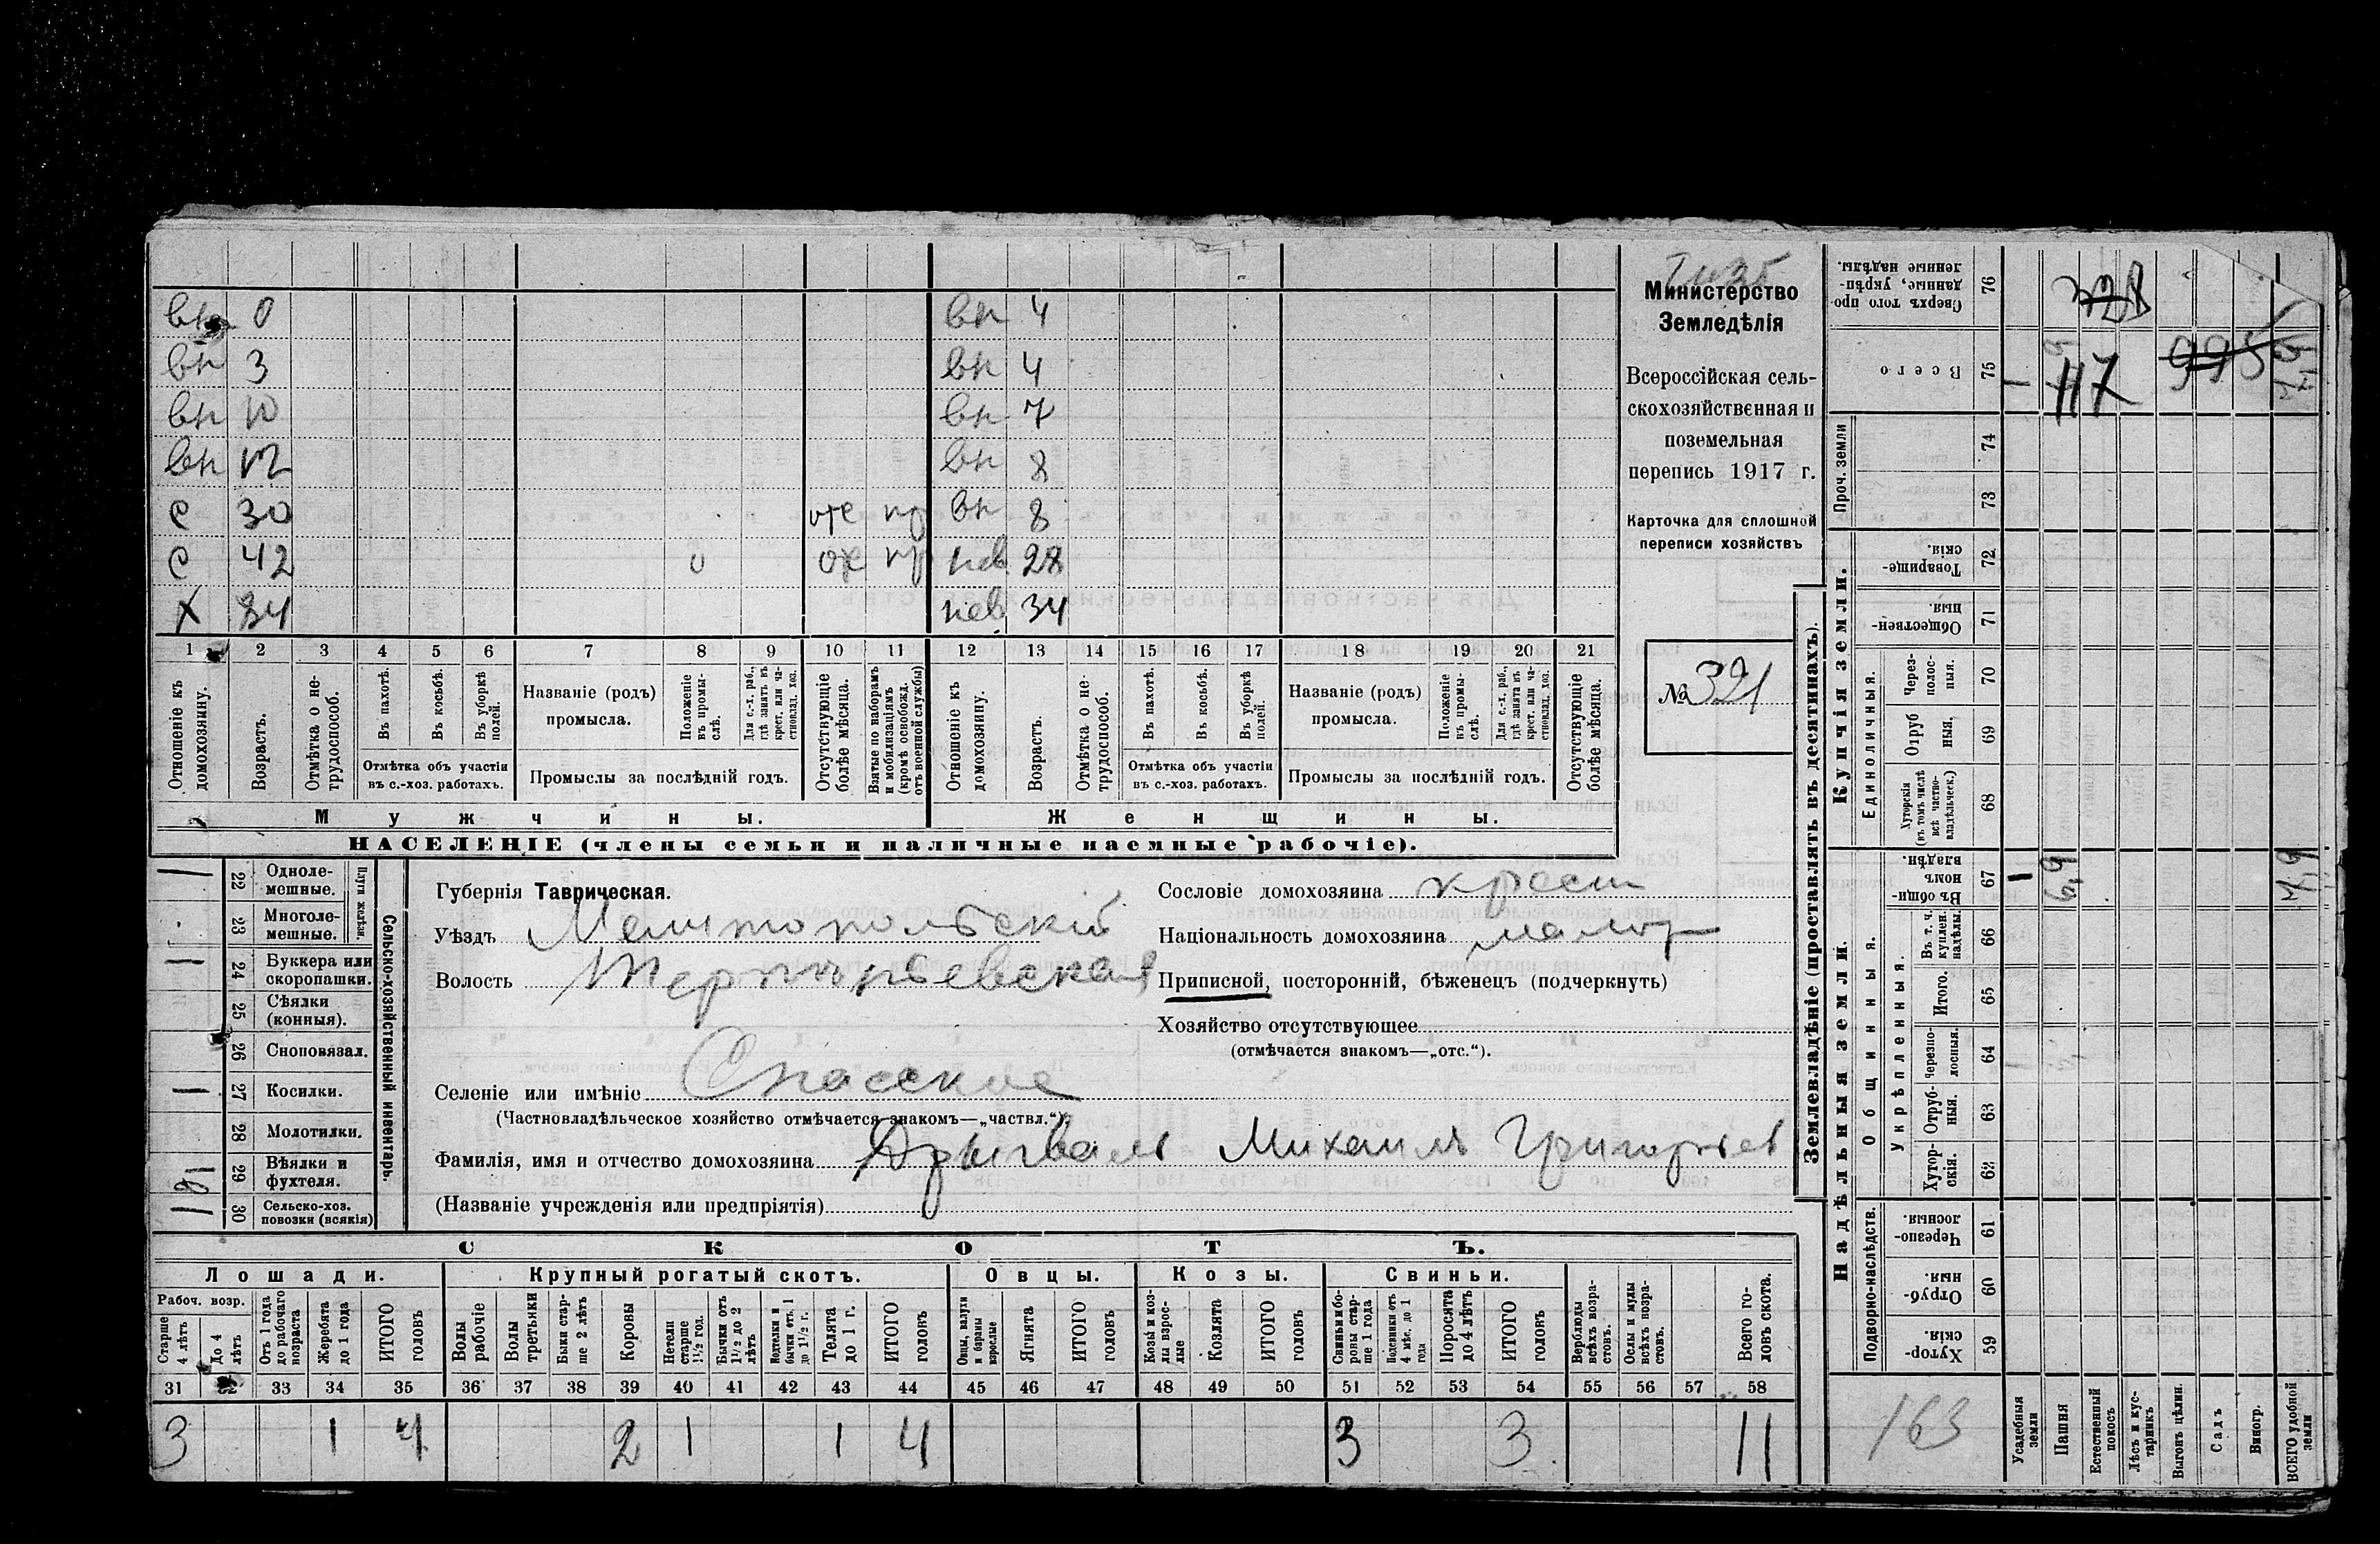 Министерство
Земледѣлія
Всероссійская сель-
скохозяйственная и
поземельная
перепись 1917 г.
Карточка для сплошной
переписи хозяйствъ
№ 321
вн 0 вн 4
вн 3 вн 4
вн 10 вн 7
вн 12 вн 8
с 30 отс пр вн 8
с 42 0 отс пр нев 28
х 34 нев 34
1 2 3 4 5 6 7 8 9 10 11 12 13 14 15 16 17 18 19 20 21
Отношеніе къ домохозяину.
Возрастъ.
Отмѣтка о не-трудоспособ.
Въ пахотѣ.
Въ косьбѣ.
Въ уборкѣ полей.
Отмѣтка объ участіи въ с.-хоз. работахъ.
Названіе (родъ) промысла.
Положеніе въ промы-слѣ.
Для с.-х. раб., гдѣ занятъ въ крест. или ча-стновлад. хоз.
Промыслы за послѣдній годъ.
Отсутствующіе болѣе мѣсяца.
Взятые по наборамъ и мобилизаціямъ (кромѣ освобожд. отъ военной службы)
Отношеніе къ домохозяину.
Возрастъ.
Отмѣтка о не-трудоспособ.
Въ пахотѣ.
Въ косьбѣ.
Въ уборкѣ полей.
Отмѣтка объ участіи въ с.-хоз. работахъ.
Названіе (родъ) промысла.
Положеніе въ промы-слѣ.
Для с.-х. раб., гдѣ занята въ крест. или ча-стновлад. хоз.
Промыслы за послѣдній годъ.
Отсутствующіе болѣе мѣсяца.
Мужчины. Женщины.
НАСЕЛЕНІЕ (члены семьи и наличные наемные рабочіе).
Сельско-хозяйственный инвентарь.
Плуги желѣзн.
1 22 Одноле-мешные.
23 Многоле-мешные.
1 24 Буккера или скоропашки.
25 Сѣялки (конныя).
26 Сноповязал.
1 27 Косилки.
28 Молотилки.
29 Вѣялки и фухтеля.
30 Сельско-хоз. повозки (всякія)
Губернія Таврическая.
Уѣздъ Мелитопольскій
Волость Терпѣньевская
Селеніе или имѣніе Спасское
(Частновладѣльческое хозяйство отмѣчается знакомъ—„частвл.“)
Фамилія, имя и отчество домохозяина Дрыгваль Михаилъ Григорьев
(Названіе учрежденія или предпріятія)
Сословіе домохозяина крест
Національность домохозяина малор
Приписной, посторонній, бѣженецъ (подчеркнуть)
Хозяйство отсутствующее
(отмѣчается знакомъ—„отс.“).
СКОТЪ.
Лошади. Крупный рогатый скотъ. Овцы. Козы. Свиньи.
Рабоч. возр.
Старше 4 лѣтъ
До 4 лѣтъ
Отъ 1 года до рабочаго возраста
Жеребята до 1 года
ИТОГО головъ
Волы рабочіе
Волы третьяки
Быки стар-ше 2 лѣтъ
Коровы
Нетели старше 1½ год.
Бычки отъ 1½ до 2 лѣтъ
Нодтелки и бычки отъ 1 до 1½ г.
Телята до 1 г.
ИТОГО головъ
Овцы, валухи и бараны взрослые
Ягнята
ИТОГО головъ
Козы и коз-лы взрос-лые
Козлята
ИТОГО головъ
Свиньи и бо-ровы стар-ше 1 года
Подсвинки отъ 4 мѣс. до 1 года
Поросята до 4 лѣтъ
ИТОГО головъ
Верблюды всѣхъ возра-стовъ.
Ослы и мулы всѣхъ возра-стовъ.
Всего го-ловъ скота.
31 32 33 34 35 36 37 38 39 40 41 42 43 44 45 46 47 48 49 50 51 52 53 54 55 56 57 58
3 1 4 2 1 1 4 3 3 11
Землевладѣніе (проставлять въ десятинахъ).
Купчія земли.
Надѣльныя земли.
76 Сверхъ того про-данные, укрѣп-ленные надѣлы.
75 Всего 117 995
Проч. земли
74
73
72 Товарище-скія.
71 Обществен-ныя.
Единоличныя.
70 Через-полос-ныя.
69 Отруб ныя.
68 Хуторскія (въ томъ числѣ всѣ частно-владѣльческ.)
Общинныя.
67 Въ общи-номъ владѣн. 1 6,9 7,9
Укрѣпленныя.
66 Въ т. ч. куплен. надѣлы.
65 Итого.
64 Черезпо-лосныя.
63 Отруб-ныя.
62 Хутор-скія.
Подворно-наслѣдств.
61 Черезпо-лосныя.
60 Отруб-ныя.
59 Хутор-скія.
163
Усадебныя земли
Пашня
Естественный покосъ
Лѣсъ и кус-тарникъ
Выгонъ цѣлин.
Садъ
Виногр.
ВСЕГО удобной земли